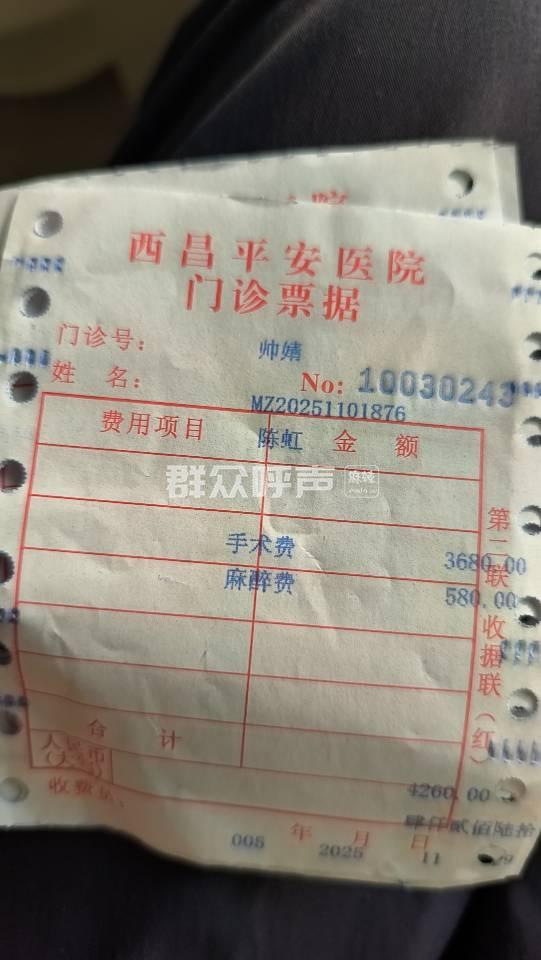 西昌平安医院
门诊票据
门诊号： 帅婧
姓名： No: 10030243
MZ20251101876
费用项目 陈虹 金额
群众呼声
手术费 3680.00
麻醉费 580.00
第二联 收据联（红）
合计
人民币
4260.00
收费员：
肆仟贰佰陆拾
年 月 日
005 2025 11